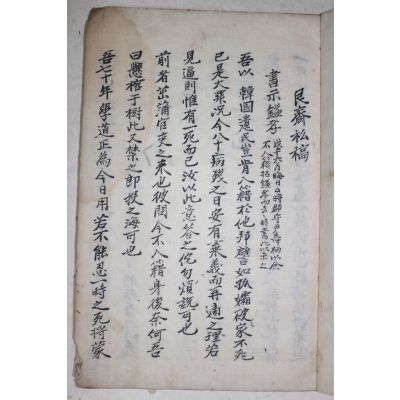 艮齋私稿
書示鎰孝
吾以韓國遺民豈肯入籍於他邦譬如孤孀破家不死
已是大罪況今八十病殘之日安有棄義而再適之理若
見逼則惟有一死而已汝以此意答之俾勿煩說可也
前省蒞官吏之來也彼問今不入籍身後奈何吾
曰懸棺于樹此又禁之即投之海可也
吾七十年學道正為今日用若不能忍一時之死將蒙